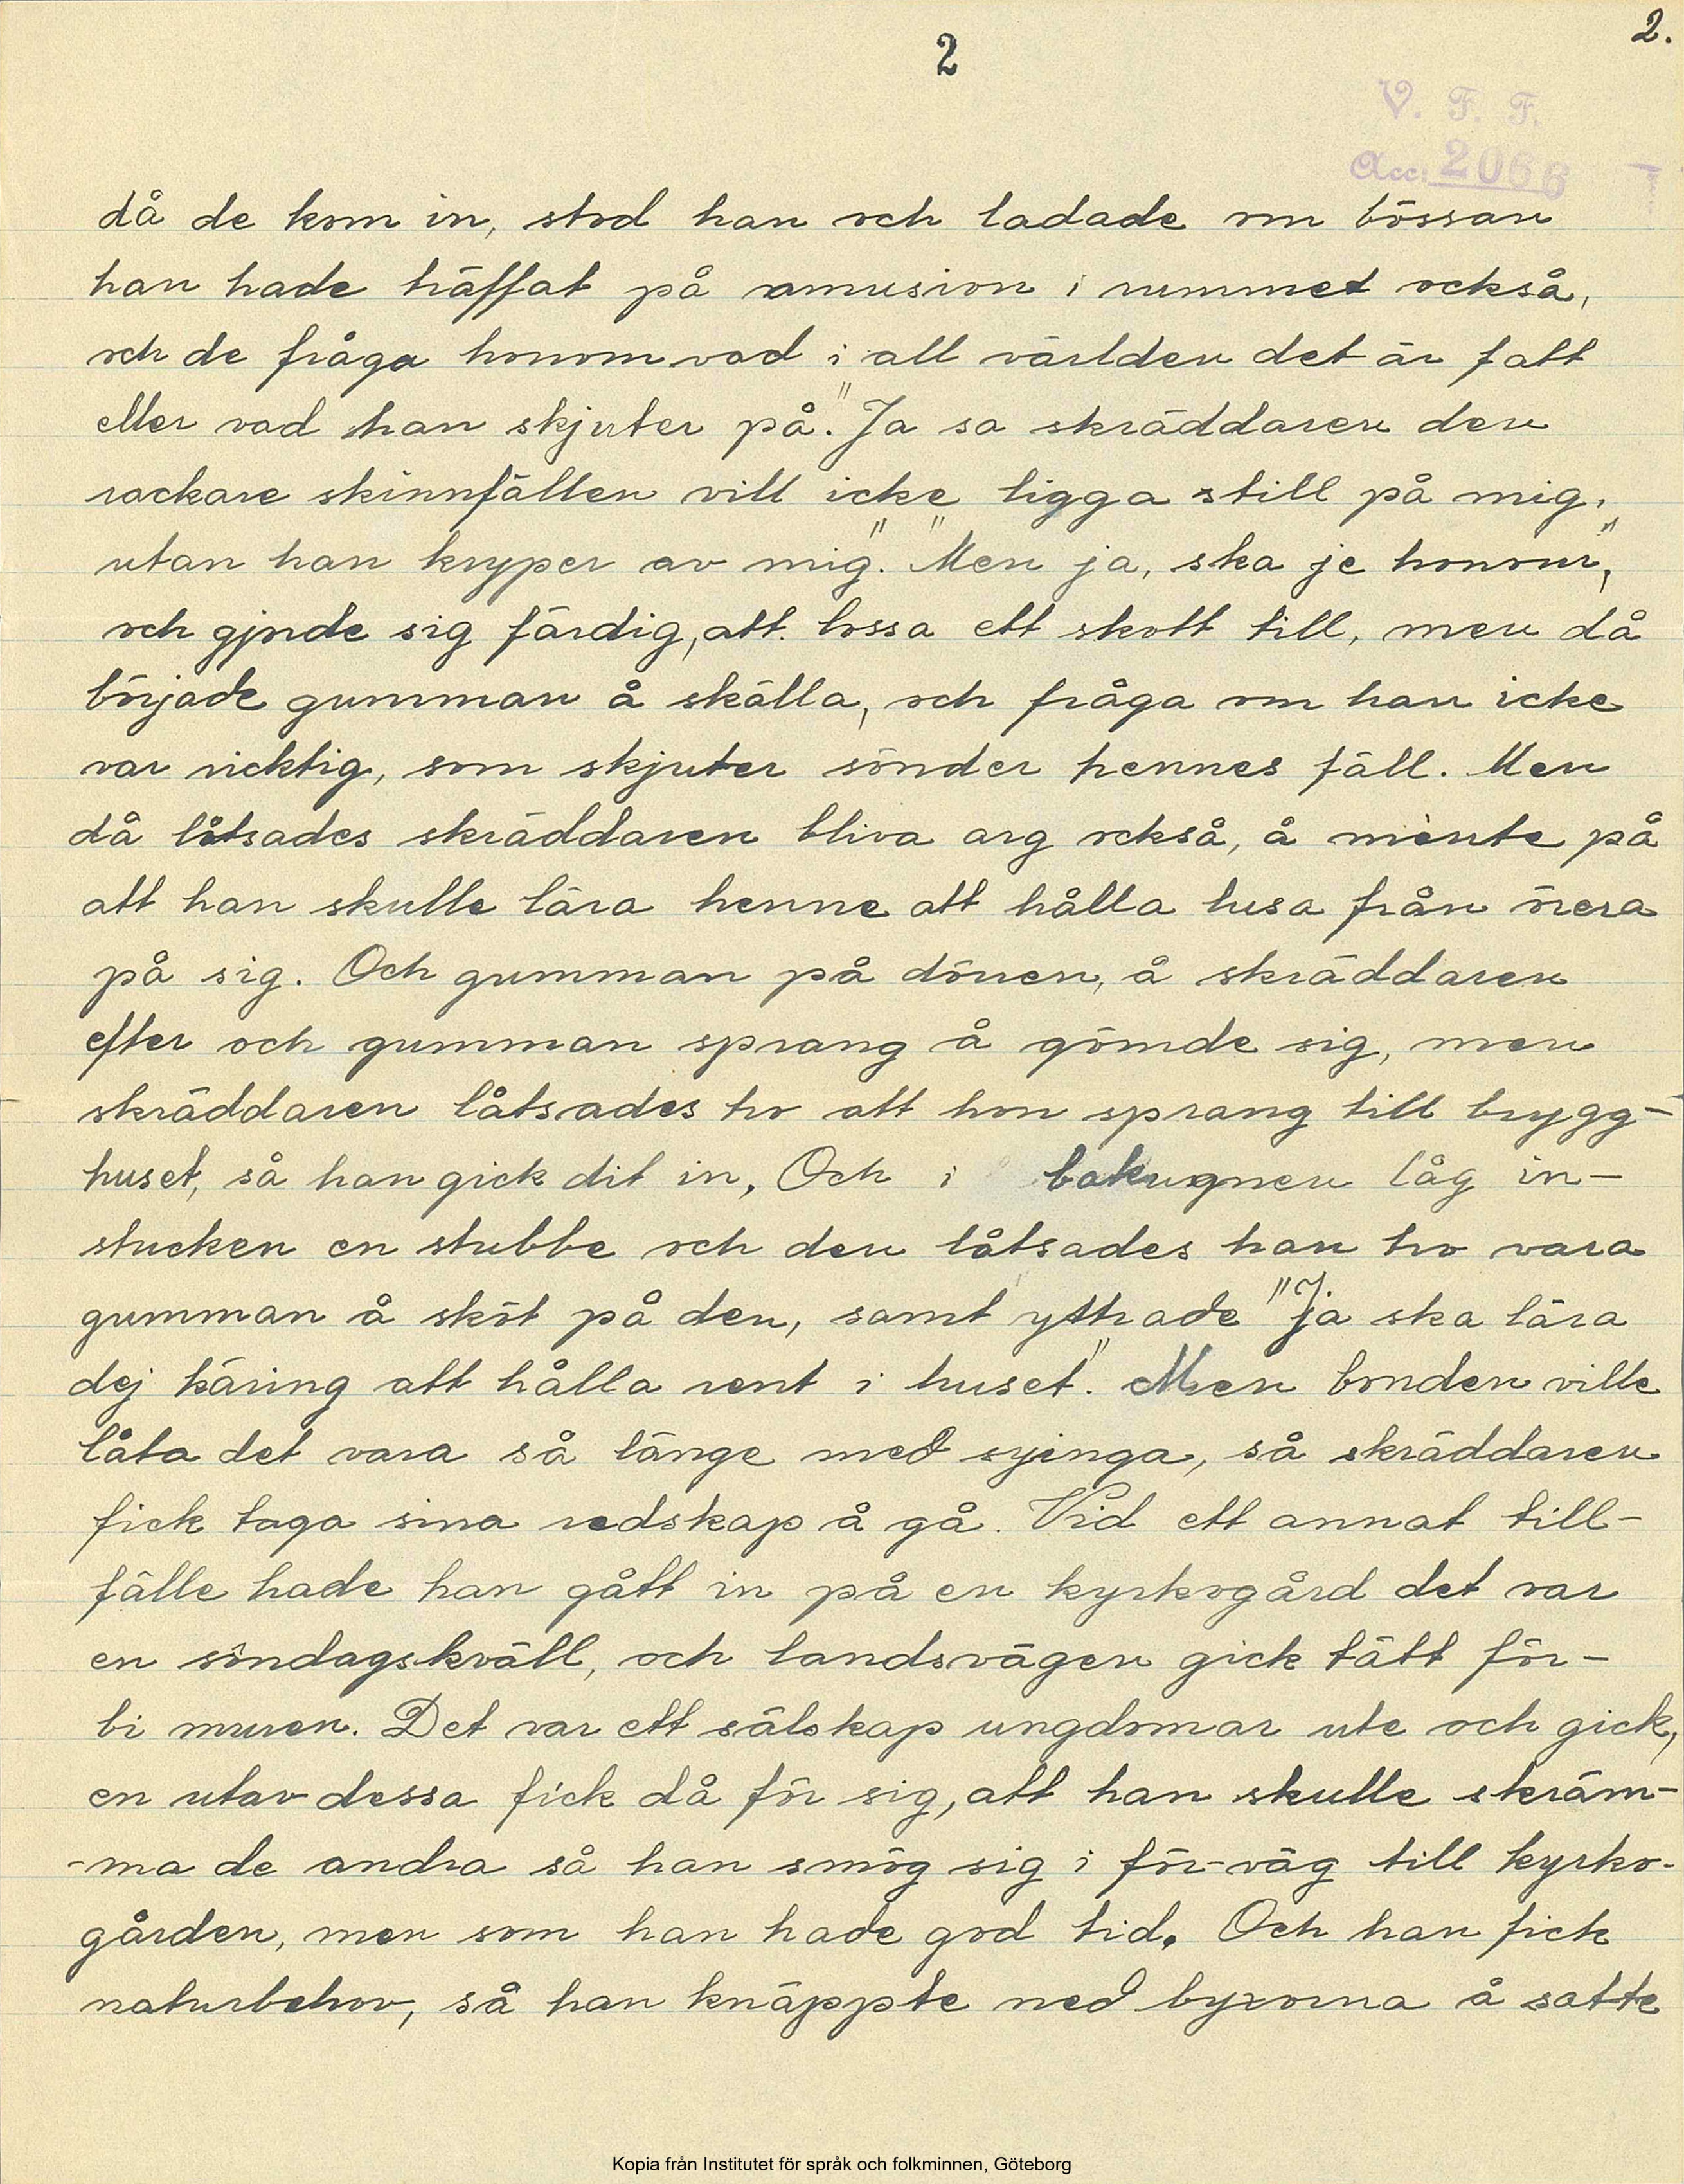 2
2.
V. F. F.
Acc: 2066
då de kom in, stod han och ladade om bössan
han hade träffat på amusion i rummet också,
och de fråga honom vad i all världen det är fatt
eller vad han skjuter på. "Ja sa skräddaren den
rackare skinnfällen vill icke ligga still på mig,
utan han kryper av mig". "Men ja, ska je honom",
och gjorde sig färdig, att lossa ett skott till, men då
började gumman å skälla, och fråga om han icke
var ricktig, som skjuter sönder hennes fäll. Men
då låtsades skräddaren bliva arg också, å mente på
att han skulle lära henne att hålla lusa från örera
på sig. Och gumman på dörren, å skräddaren
efter och gumman sprang å gömde sig, men
skräddaren låtsades tro att hon sprang till brygg-
huset, så han gick dit in, Och i bakugnen låg in-
stucken en stubbe och den låtsades han tro vara
gumman å sköt på den, samt yttrade "Ja ska lära
dej käring att hålla rent i huset". Men bonden ville
låta det vara så länge med syinga, så skräddaren
fick taga sina redskap å gå. Vid ett annat till-
fälle hade han gått in på en kyrkogård det var
en söndagskväll, och landsvägen gick tätt för-
bi muren. Det var ett sälskap ungdomar ute och gick,
en utav dessa fick då för sig, att han skulle skräm-
-ma de andra så han smög sig i för-väg till kyrko-
gården, men som han hade god tid. Och han fick
naturbehov, så han knäppte ned byxorna å satte
Kopia från Institutet för språk och folkminnen, Göteborg